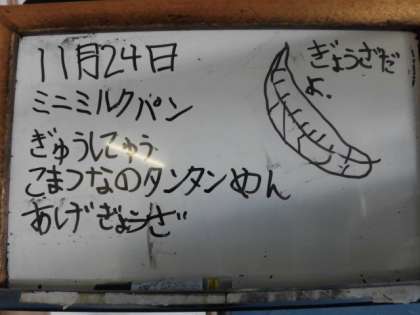 11月24日
ミニミルクパン
ぎゅうにゅう
こまつなのタンタンめん
あげぎょうざ
ぎょうざだ
よ。